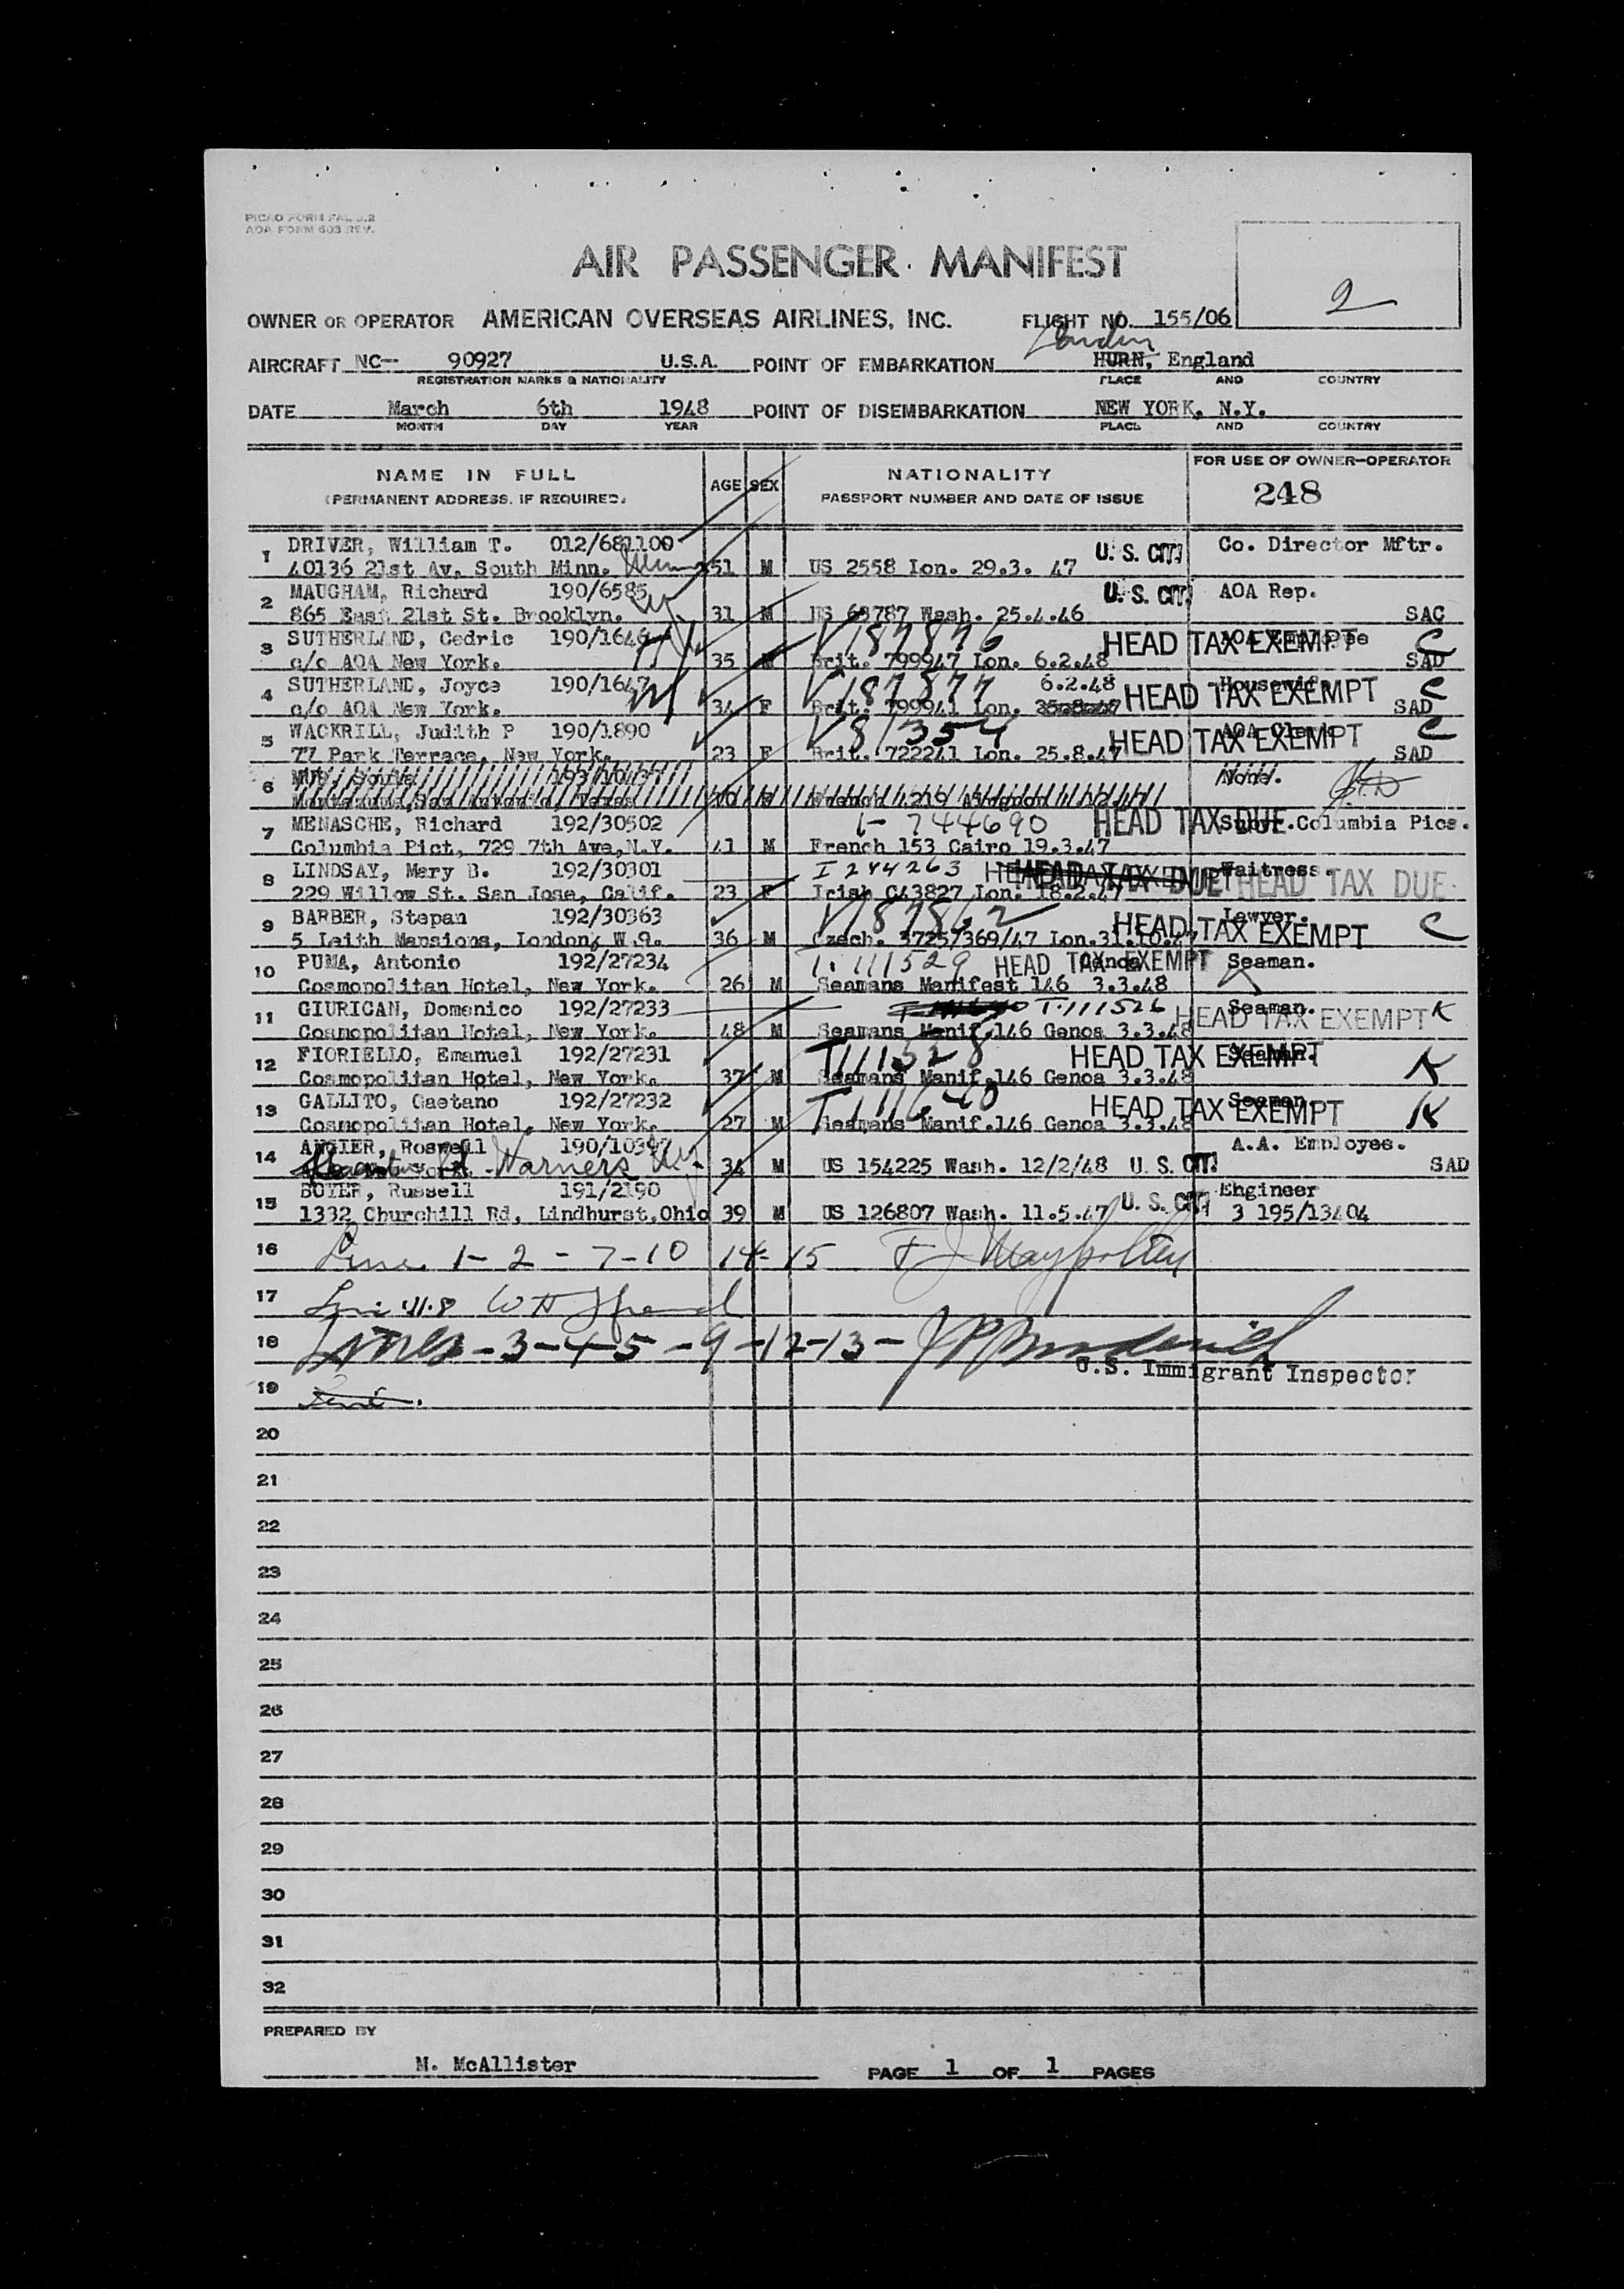 PICAO FORM FAL 3.2
AOA FORM 603 REV.
AIR PASSENGER MANIFEST
2
OWNER OR OPERATOR AMERICAN OVERSEAS AIRLINES, INC. FLIGHT NO. 155/06
London
AIRCRAFT NC-- 90927 U.S.A. POINT OF EMBARKATION HURN, England
REGISTRATION MARKS & NATIONALITY PLACE AND COUNTRY
DATE March 6th 1948 POINT OF DISEMBARKATION NEW YORK, N.Y.
MONTH DAY YEAR PLACE AND COUNTRY
NAME IN FULL AGE SEX NATIONALITY FOR USE OF OWNER-OPERATOR
(PERMANENT ADDRESS, IF REQUIRED) PASSPORT NUMBER AND DATE OF ISSUE 248
1 DRIVER, William T. 012/681100 U. S. CIT. Co. Director Mftr.
40136 21st Av. South Minn. 51 M US 2558 Lon. 29.3. 47
2 MAUGHAM, Richard 190/6585 U. S. CIT. AOA Rep.
865 East 21st St. Brooklyn. 31 M US 63787 Wash. 25.4.46 SAC
3 SUTHERLAND, Cedric 190/1646 V187876 HEAD TAX EXEMPT C
c/o AOA New York. 35 M Brit. 799947 Lon. 6.2.48 SAD
4 SUTHERLAND, Joyce 190/1647 V187877 6.2.48 HEAD TAX EXEMPT Housewife C
c/o AOA New York. 34 F Brit. 799941 Lon. SAD
5 WACKRILL, Judith P 190/1890 V81354 HEAD TAX EXEMPT AOA Clerk C
77 Park Terrace, New York. 23 F Brit. 722241 Lon. 25.8.47 SAD
6 None.
San Antonio, Texas
7 MENASCHE, Richard 192/30502 744690 HEAD TAX DUE Columbia Pics.
Columbia Pict, 729 7th Ave, N.Y. 41 M French 153 Cairo 19.3.47
8 LINDSAY, Mary B. 192/30301 I 244263 HEAD TAX DUE Waitress. HEAD TAX DUE
229 Willow St. San Jose, Calif. 23 F Irish C43827 Lon. 18.2.47
9 BARBER, Stepan 192/30363 V187862 HEAD TAX EXEMPT Lawyer. C
5 Leith Mansions, London, W.9. 36 M Czech. 3725/369/47 Lon.31.10.47
10 PUMA, Antonio 192/27234 T.111529 HEAD TAX EXEMPT Genoa Seaman.
Cosmopolitan Hotel, New York. 26 M Seamans Manifest 146 3.3.48
11 GIURICAN, Domenico 192/27233 T.111526 Seaman. HEAD TAX EXEMPT K
Cosmopolitan Hotel, New York. 48 M Seamans Manif.146 Genoa 3.3.48
12 FIORIELLO, Emanuel 192/27231 T111528 HEAD TAX EXEMPT Seaman. K
Cosmopolitan Hotel, New York. 37 M Seamans Manif.146 Genoa 3.3.48
13 GALLITO, Gaetano 192/27232 HEAD TAX EXEMPT Seaman. K
Cosmopolitan Hotel, New York. 27 M Seamans Manif.146 Genoa 3.3.48
14 ANGIER, Roswell 190/10397 A.A. Employee.
34 M US 154225 Wash. 12/2/48 U. S. CIT. SAD
15 BOYER, Russell 191/2190 U. S. CIT. Engineer
1332 Churchill Rd, Lindhurst,Ohio 39 M US 126807 Wash. 11.5.47 3 195/13404
16 1-2-7-10 14-15
17
18 Lines-3-4-5-9-12-13-
U.S. Immigrant Inspector
19
20
21
22
23
24
25
26
27
28
29
30
31
32
PREPARED BY
M. McAllister PAGE 1 OF 1 PAGES